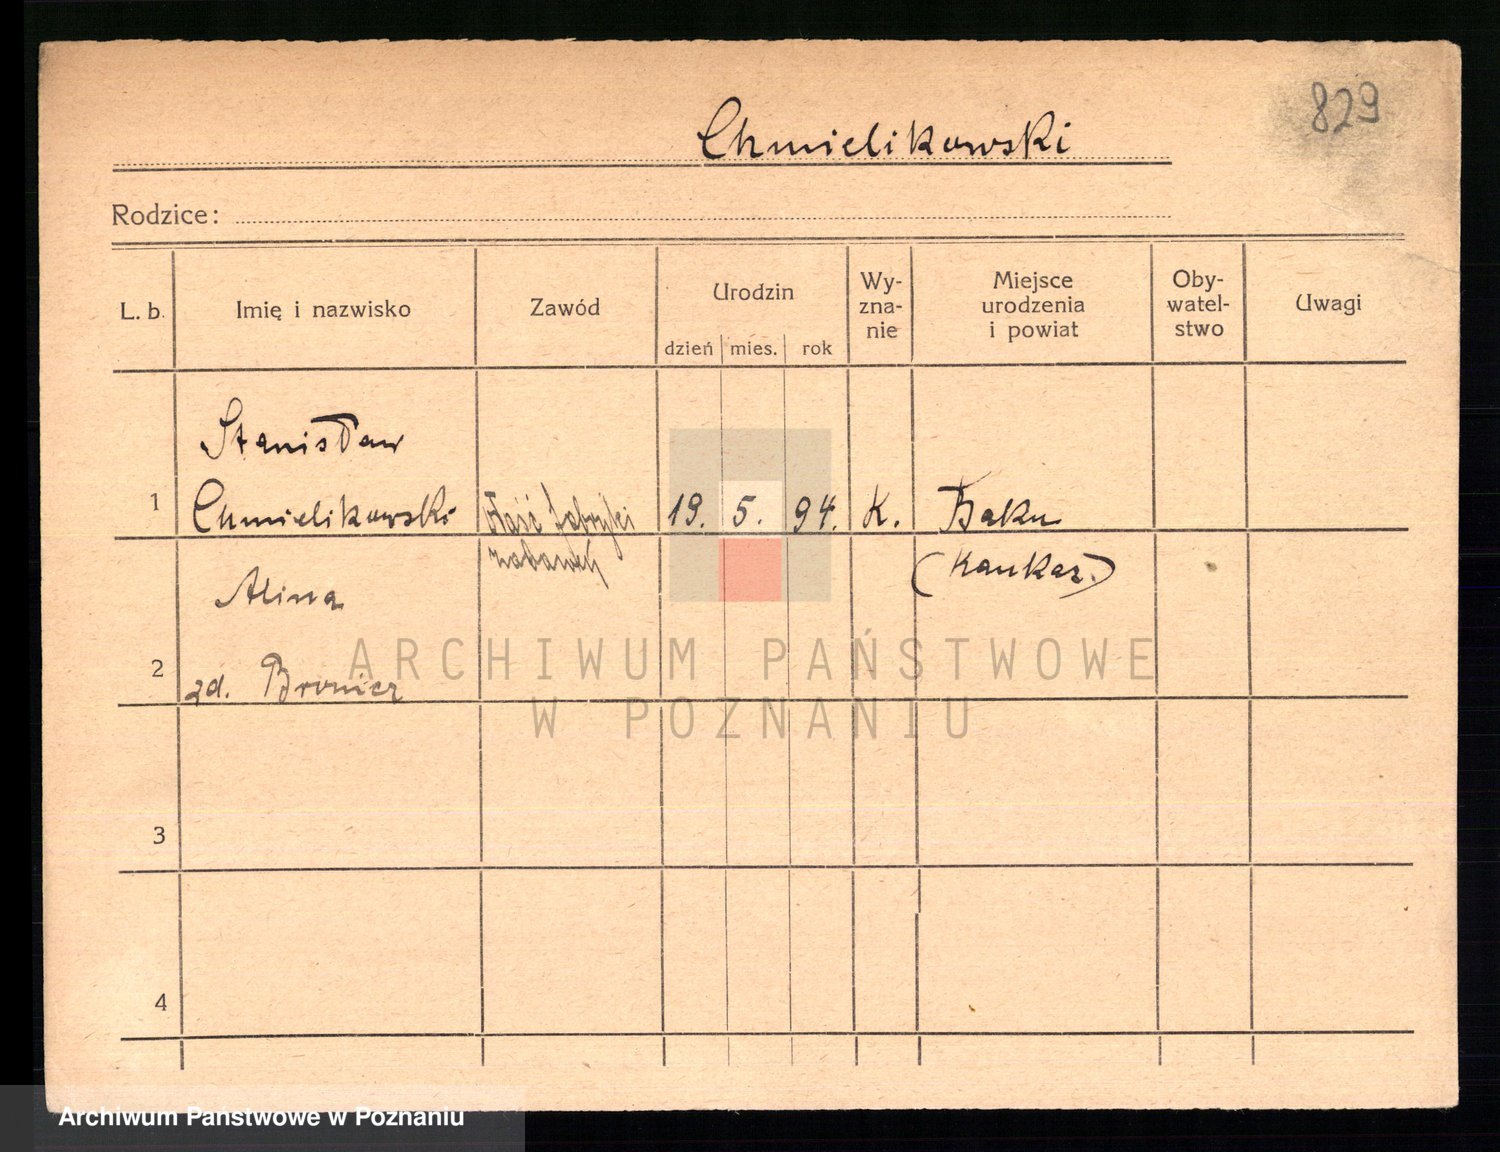 829
Chmielikowski
Rodzice:
L. b.
Imię i nazwisko
Zawód
Urodzin
dzień
mies.
rok
Wy-
zna-
nie
Miejsce
urodzenia
i powiat
Oby-
watel-
stwo
Uwagi
1
Stanisław
Chmielikowski
Właść fabryki
zabawek
19.
5.
94.
K.
Baku
(Kaukaz.)
2
Alina
zd. Bronicz
3
4
ARCHIWUM PAŃSTWOWE
W POZNANIU
Archiwum Państwowe w Poznaniu